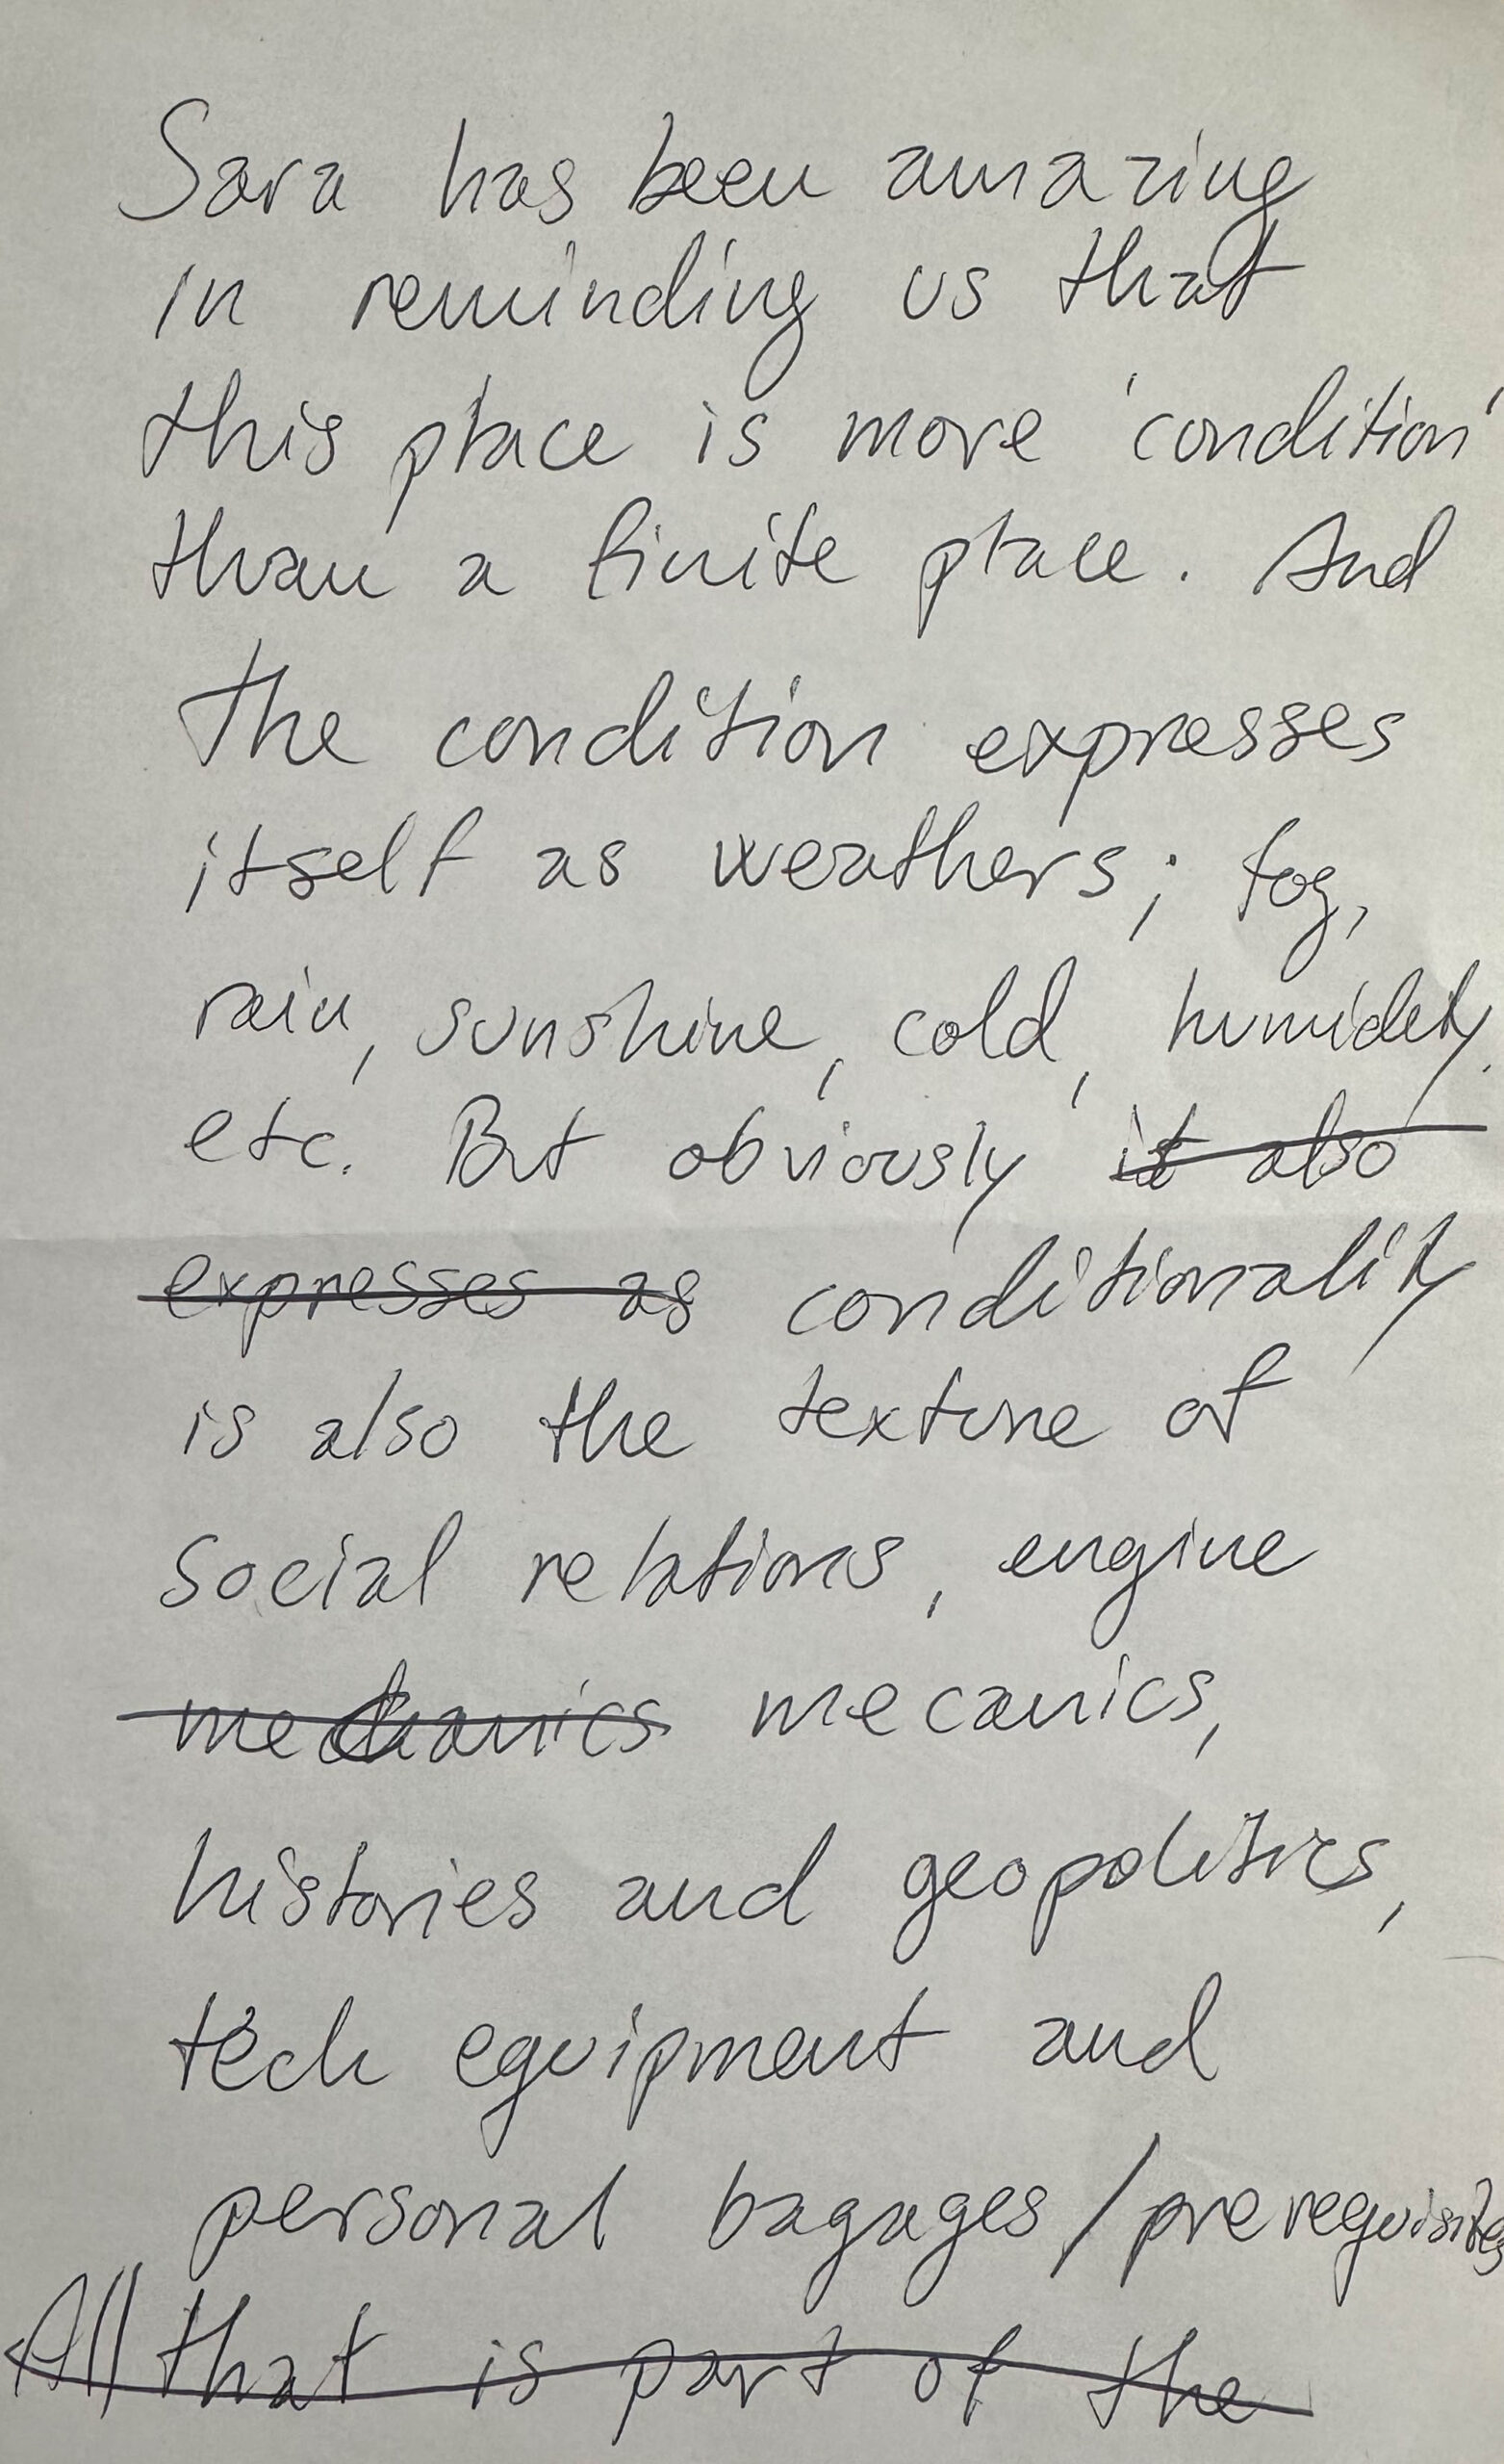 Sara has been amazing
in reminding us that
this place is more 'condition'
than a finite place. And
the condition expresses
itself as weathers; fog,
rain, sunshine, cold, humidity,
etc. But obviously it also
expresses as conditionality
is also the texture of
social relations, engine
mechanics mecanics,
histories and geopolitics,
tech equipment and
personal bagages/prerequisites
All that is part of the